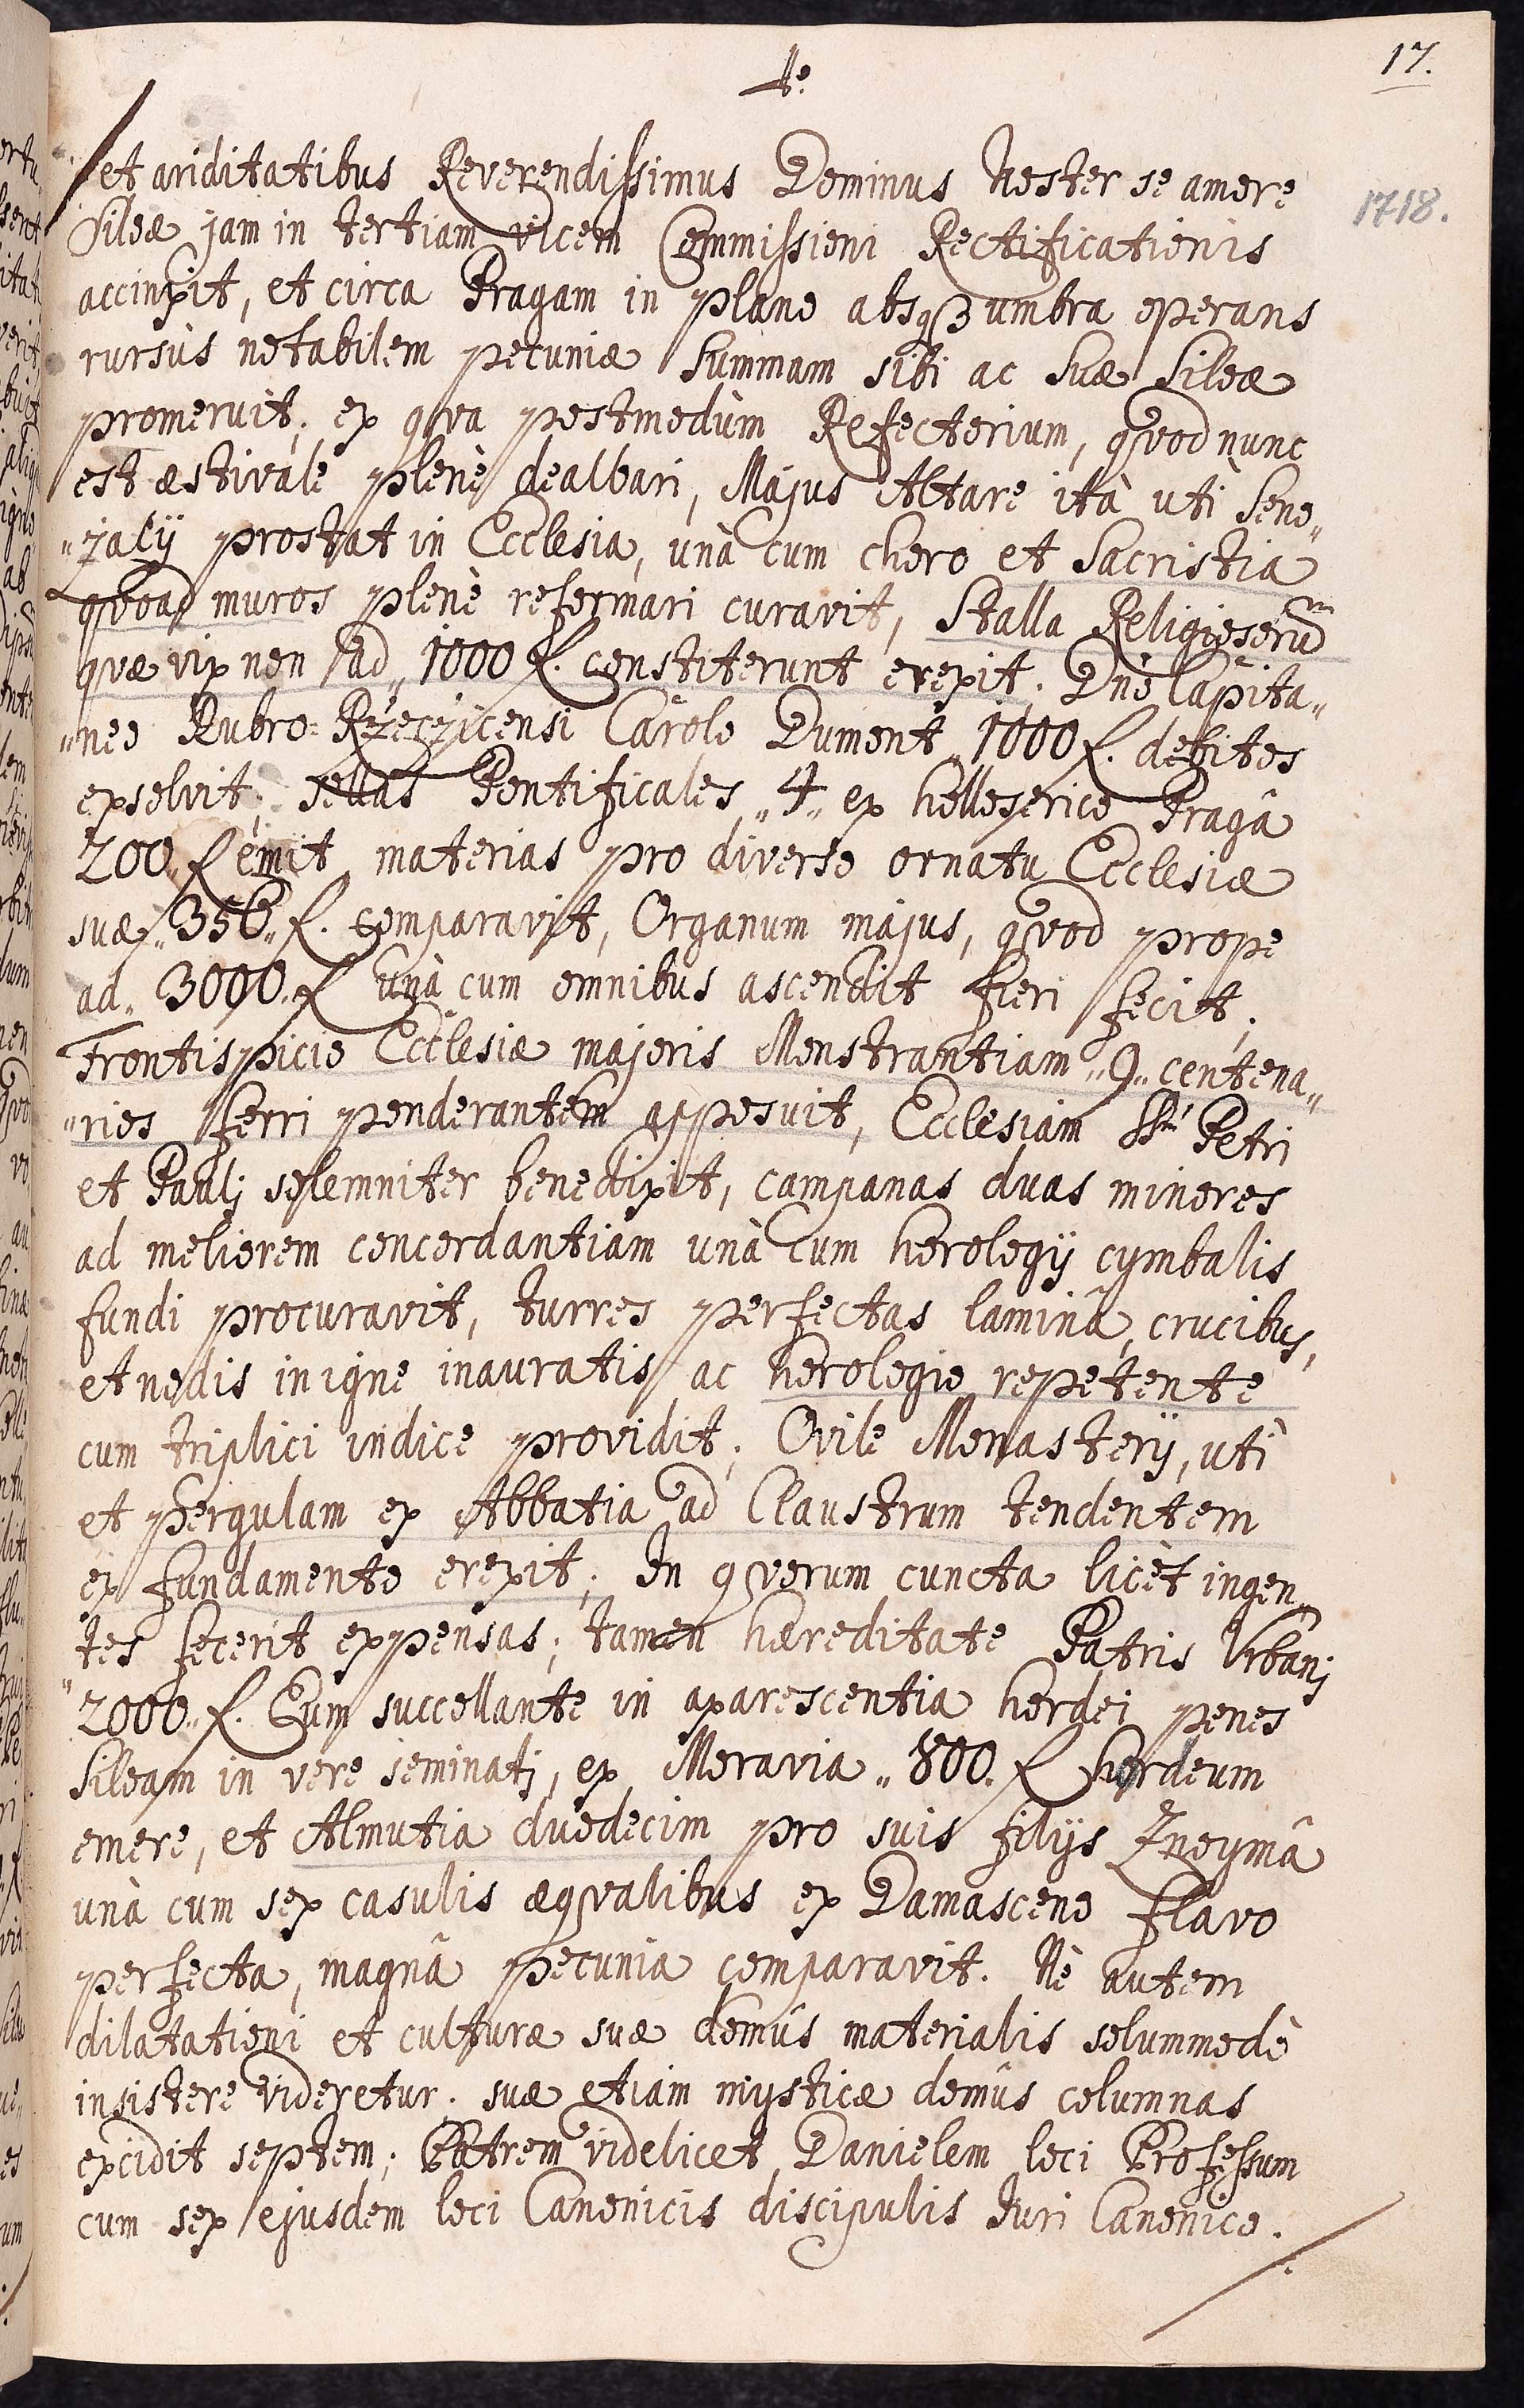 17.
4º
1718.
et ariditatibus Reverendissimus Dominus Noster se amore
Siloæ jam in tertiam vicem Commissioni Rectificationis
accinxit, et circa Pragam in plano absqꝫ umbra operans
rursùs notabilem pecuniæ Summam sibi ac Suæ Siloæ
promeruit; ex qva postmodùm Refectorium, qvod nunc
est æstivale plenè dealbari, Majus Altare ità uti Seno„
„zalÿ prostat in Ecclesia, unà cum choro et Sacristia
qvoad muros plenè reformari curavit, Stalla Religiosorũ
qvæ vix non ad „1000 f. constiterunt erexit. Dnõ Capita„
„neo Rubro=Rzeczicensi Carolo Dumont „1000 f. debitos
exsolvit; sellas Pontificales „4„ ex holloserico Pragâ
200„ f emit materias pro diverso ornatu Ecclesiæ
suæ „350„ f. comparavit, Organum majus, qvod prope
ad „3000„ f unà cum omnibus ascendit fieri fecit;
Frontispicio Ecclesiæ majoris Monstrantiam „9„ centena„
„rios ferri ponderantem apposuit, Ecclesiam SStm Petri
et Pauli solemniter benedixit, campanas duas minores
ad meliorem concordantiam unà cum horologÿ cymbalis
fundi procuravit, turres perfectas laminâ, crucibus,
et nodis in igne inauratis ac horologio repetente
cum triplici indice providit; Ovile Monasterÿ, uti
et pergulam ex Abbatia ad Claustrum tendentem
ex fundamento erexit; In qvorum cuncta licèt ingen„
„tes fecerit expensas; tamen hæreditate Patris Urbanj
2000„ f. Eum succollante in aparescentia hordei penes
Siloam in vere seminatj, ex Moravia „800„ f hordeum
emere, et Almutia duodecim pro suis filÿs Znoymâ
unà cum sex casulis æqvalibus ex Damasceno flavo
perfecta, magnâ pecunia comparavit. Nè autem
dilatationi et culturæ suæ domûs materialis solummodò
insistere videretur; suæ etiam mysticæ domûs columnas
excidit septem; Patrem videlicet Danielem loci Professum
cum sex ejusdem loci Canonicis discipulis Iuri Canonico.